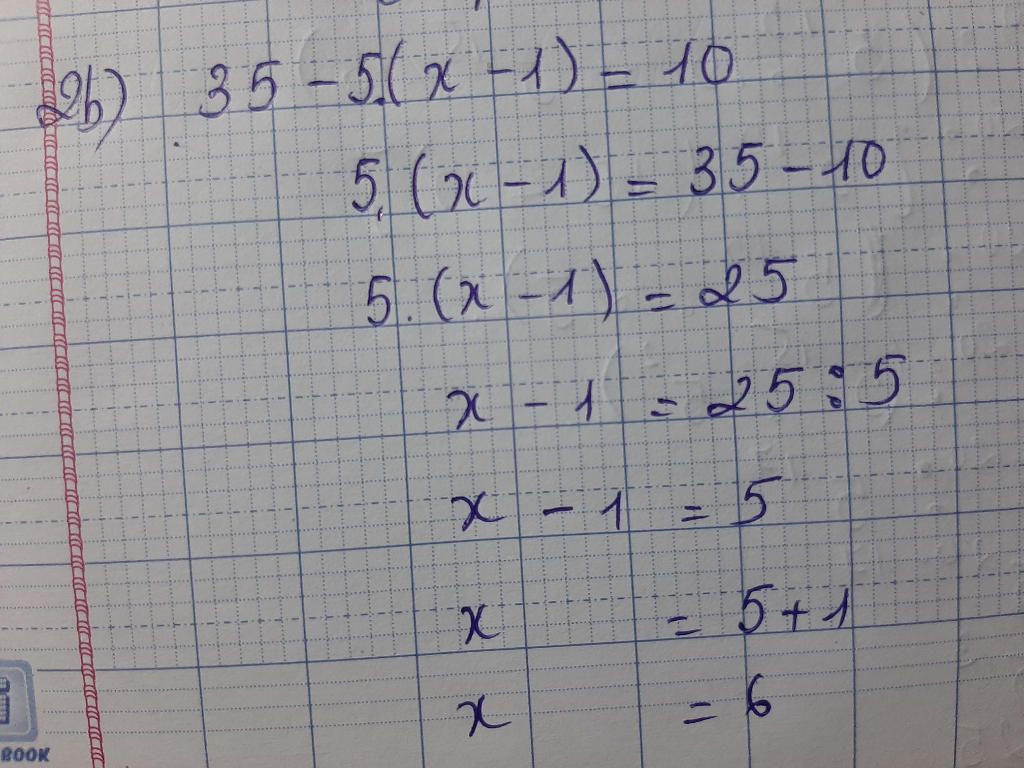 2b) 35 - 5.(x - 1) = 10
5.(x - 1) = 35 - 10
5.(x - 1) = 25
x - 1 = 25 : 5
x - 1 = 5
x = 5 + 1
x = 6
BOOK